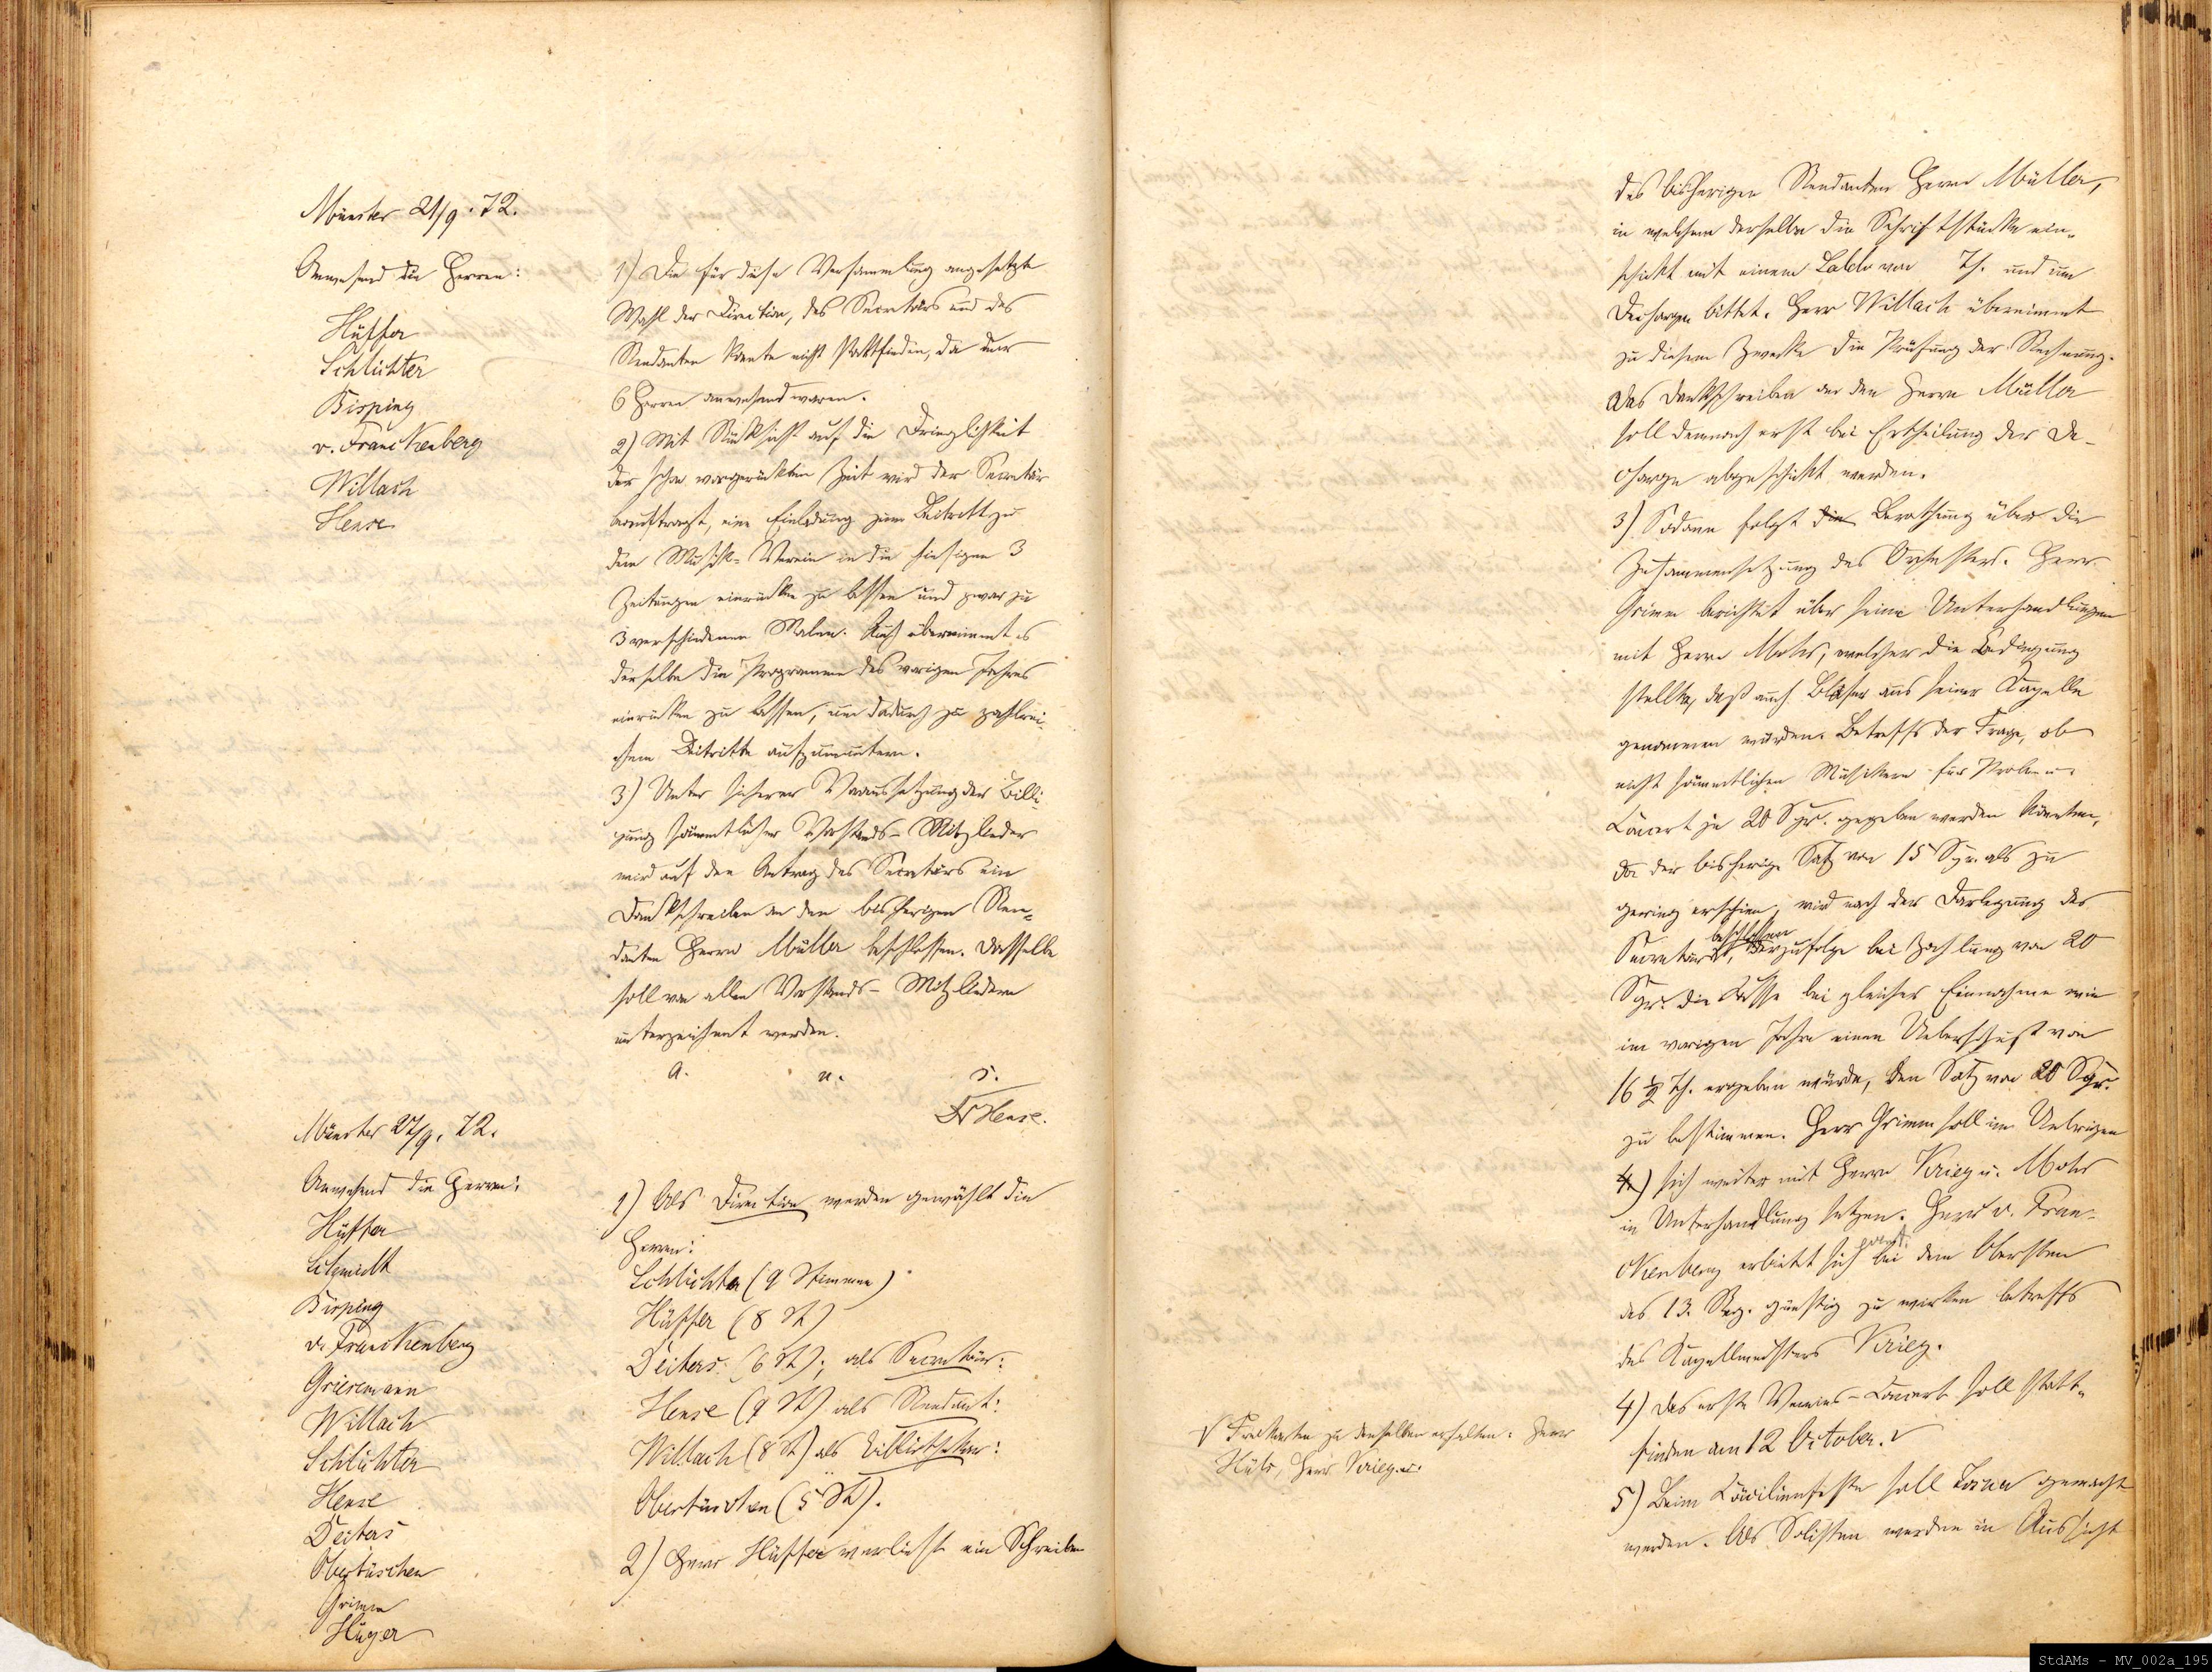 Münster 21/9. 72.
Anwesend die Herren:
Hüffer
Schlichter
Bisping
v. Franckenberg
Willach
Hense
1) Die für diese Versammlung angesetzte
Wahl der Direction, des Secretärs und des
Rendanten konte nicht stattfinden, da nur
6 Herren anwesend waren.
2) Mit Rücksicht auf die Dringlichkeit
der schon vorgerückten Zeit wird der Secretär
beauftragt, eine Einladung zum Beitritt zu
dem Musik-Verein in die hiesigen 3
Zeitungen einrücken zu lassen und zwar zu
3 verschiedenen Malen. Auch übernimmt es
derselbe die Programme des vorigen Jahres
einrücken zu lassen, um dadurch zu zahlrei-
chem Beitritte aufzumuntern.
3) Unter sicherer Voraussetzung der Billi-
gung sämmtlicher Vorstands-Mitglieder
wird auf den Antrag des Secretärs ein
Dankschreiben an den bisherigen Ren-
danten Herrn Müller beschlossen. Dasselbe
soll von allen Vorstands-Mitgliedern
unterzeichnet werden.
a. u. s.
Dr Hense.
Münster 27/9. 72.
Anwesend die Herren:
Hüffer
Schmidt
Bisping
v. Franckenberg
Griesemann
Willach
Schlichter
Hense
Deiters
Obertüschen
Grimm
Hüger
1) Als Direction werden gewählt die
Herren:
Schlichter (9 Stimmen)
Hüffer (8 St)
Deiters (6 St); als Secretär:
Hense (9 St) als Rendant:
Willach (8 St) als Bibliothekar:
Obertüschen (5 St).
2) Herr Hüffer verliest ein Schreiben
des bisherigen Rendanten Herrn Müller,
in welchem derselbe die Schriftstücke ein-
schickt mit einem Saldo von Th. und um
Decharge bittet. Herr Willach übernimmt
zu diesem Zwecke die Prüfung der Rechnung.
Das Dankschreiben an den Herrn Müller
soll demnach erst bei Ertheilung der De-
charge abgeschickt werden.
3) Sodann folgt die Berathung über die
Zusammensetzung des Orchesters. Herr
Grimm berichtet über seine Unterhandlungen
mit Herrn Mohs, welcher die Bedingung
stellte, daß auch Bläser aus seiner Kapelle
genommen würden. Betreffs der Frage, ob
nicht sämmtlichen Musikern für Proben u.
Concert je 20 Sgr. gegeben werden könnten,
da der bisherige Satz von 15 Sgr. als zu
gering erschien, wird nach der Darlegung des
beschlossen
Secretärs, derzufolge bei Zahlung von 20
Sgr. die Casse bei gleicher Einnahme wie
im vorigen Jahre einen Ueberschuß von
16 1/2 Th. ergeben würde, den Satz von 20 Sgr.
zu bestimmen. Herr Grimm soll im Uebrigen
4) sich weiter mit Herrn Krieg u. Mohs
in Unterhandlung setzen. Herr v. Fran-
ckenberg erbietet sich bei dem Obersten
des 13. Reg. günstig zu wirken betreffs
des Kapellmeisters Krieg.
4) Das erste Vereins-Concert soll statt-
finden am 12 October. √
√ Freikarten zu denselben erhalten: Herr
Hüls, Herr Krieg
5) Beim Cäcilienfeste soll gemacht
werden. Als Solisten werden in Aussicht
StdAMs - MV_002a_195